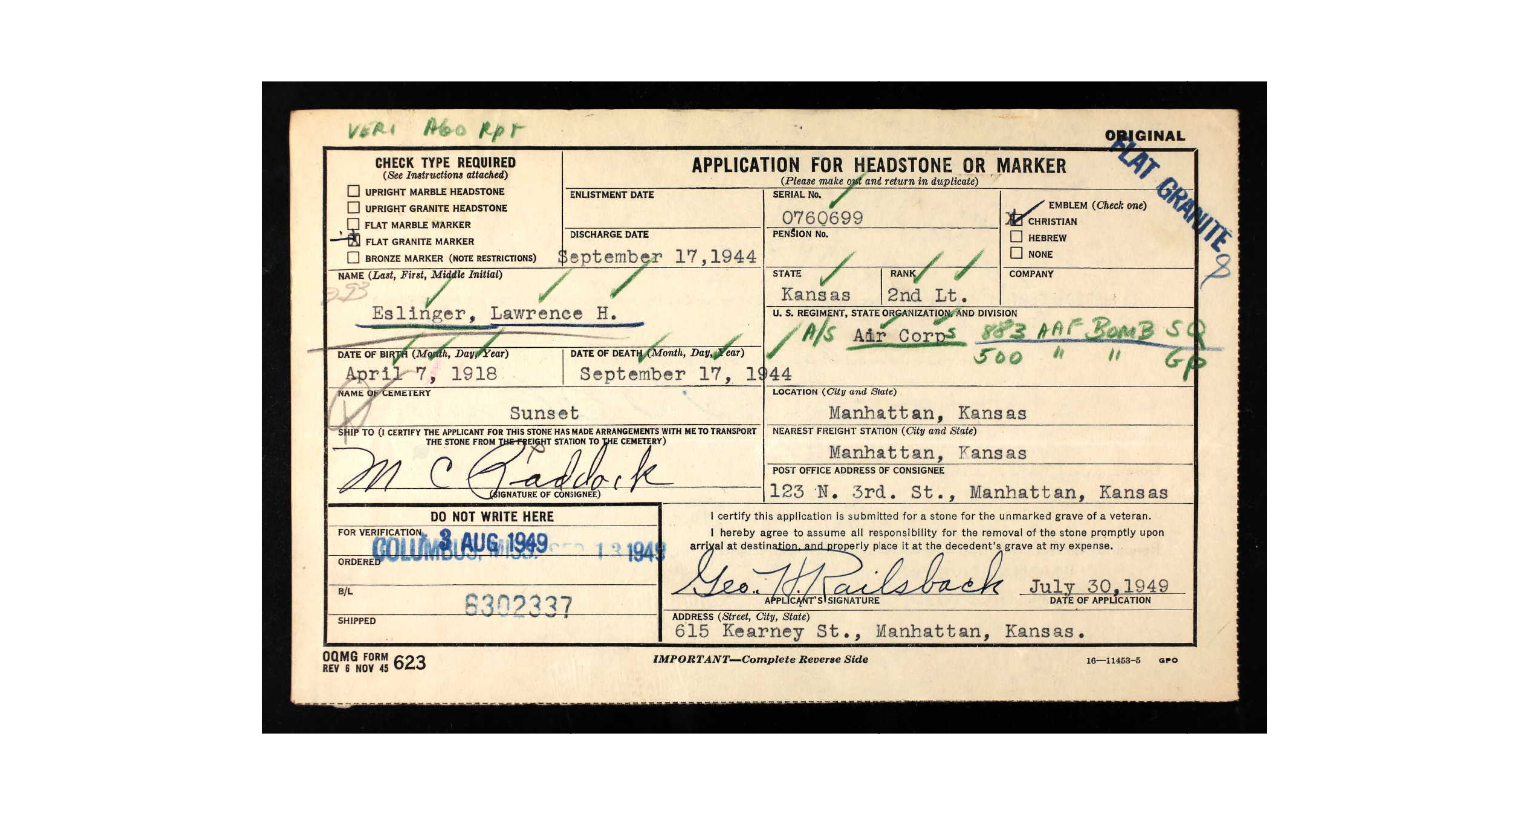 VERI AGO Rpt
ORIGINAL
FLAT GRANITE
CHECK TYPE REQUIRED
(See Instructions attached)
UPRIGHT MARBLE HEADSTONE
UPRIGHT GRANITE HEADSTONE
FLAT MARBLE MARKER
X FLAT GRANITE MARKER
BRONZE MARKER (NOTE RESTRICTIONS)
APPLICATION FOR HEADSTONE OR MARKER
(Please make out and return in duplicate)
ENLISTMENT DATE
DISCHARGE DATE
September 17,1944
SERIAL No.
0760699
PENSION No.
EMBLEM (Check one)
X CHRISTIAN
HEBREW
NONE
NAME (Last, First, Middle Initial)
293
Eslinger, Lawrence H.
STATE
Kansas
RANK
2nd Lt.
COMPANY
U. S. REGIMENT, STATE ORGANIZATION, AND DIVISION
A/S Air Corps 883 AAF BOMB SQ
500 " " GP
DATE OF BIRTH (Month, Day, Year)
April 7, 1918
DATE OF DEATH (Month, Day, Year)
September 17, 1944
NAME OF CEMETERY
Sunset
LOCATION (City and State)
Manhattan, Kansas
SHIP TO (I CERTIFY THE APPLICANT FOR THIS STONE HAS MADE ARRANGEMENTS WITH ME TO TRANSPORT
THE STONE FROM THE FREIGHT STATION TO THE CEMETERY)
M C Raddock
(SIGNATURE OF CONSIGNEE)
NEAREST FREIGHT STATION (City and State)
Manhattan, Kansas
POST OFFICE ADDRESS OF CONSIGNEE
123 N. 3rd. St., Manhattan, Kansas
DO NOT WRITE HERE
FOR VERIFICATION
3 AUG 1949
COLUMBUS, MISS. SEP 13 1949
ORDERED
B/L
6302337
SHIPPED
I certify this application is submitted for a stone for the unmarked grave of a veteran.
I hereby agree to assume all responsibility for the removal of the stone promptly upon
arrival at destination, and properly place it at the decedent's grave at my expense.
Geo. H. Railsback July 30,1949
APPLICANT'S SIGNATURE DATE OF APPLICATION
ADDRESS (Street, City, State)
615 Kearney St., Manhattan, Kansas.
OQMG FORM 623
REV 6 NOV 45
IMPORTANT—Complete Reverse Side
16—11453-5 GPO